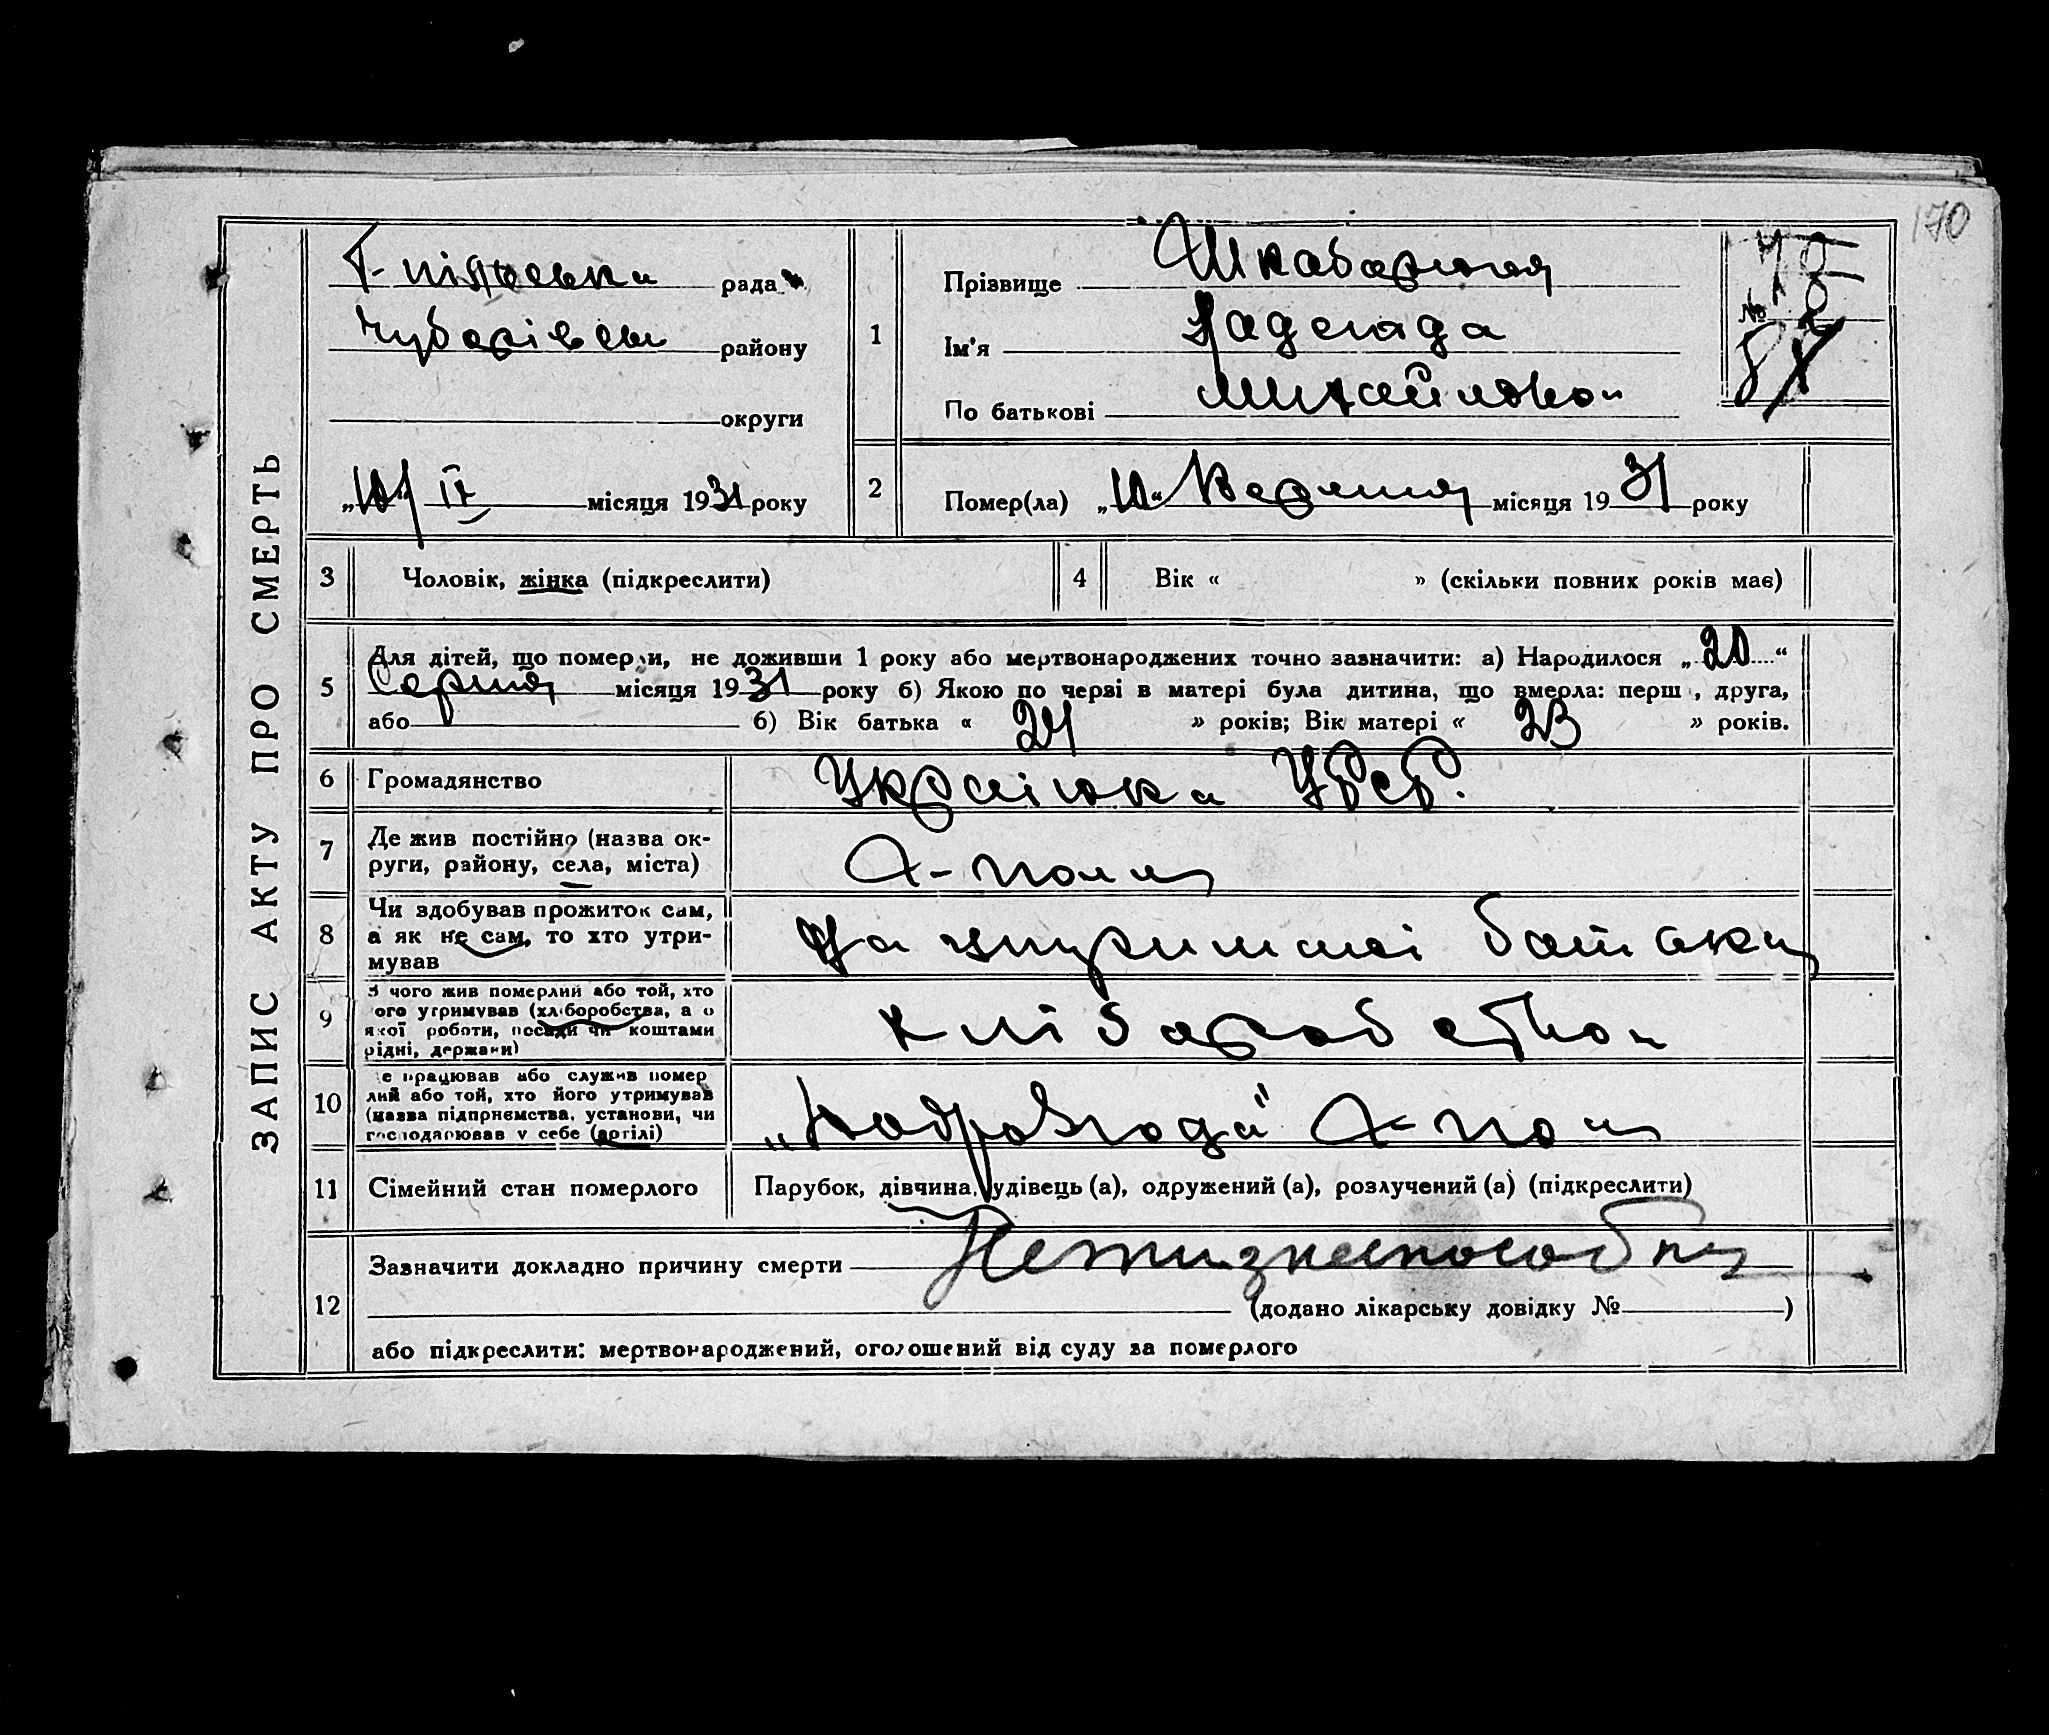 170
ЗАПИС АКТУ ПРО СМЕРТЬ
Г-пільська рада
Чубарівськ району
округи
" IX місяця 1931 року
1
Прізвище Шкабарня
Ім'я Надежда
По батькові Михайловна
№ 78
87
2
Помер(ла) „10“ Вересня місяця 1931 року
3 Чоловік, жінка (підкреслити)
4 Вік « » (скільки повних років має)
5
Для дітей, що померли, не доживши 1 року або мертвонароджених точно зазначити: а) Народилося „20“
Серпня місяця 1931 року б) Якою по черзі в матері була дитина, що вмерла: перша, друга,
або б) Вік батька « 24 » років; Вік матері « 23 » років.
6 Громадянство Українка УСРР.
7
Де жив постійно (назва ок-
руги, району, села, міста)
Г-полля
8
Чи здобував прожиток сам,
а як не сам, то хто утри-
мував
На утриманні батька
9
З чого жив померлий або той, хто
його утримував (хліборобства, а о
якої роботи, посади чи коштами
рідні, держави)
хліборобство
10
Де працював або служив помер
лий або той, хто його утримував
(назва підприємства, установи, чи
господарював у себе (артілі)
Г-поля
11 Сімейний стан померлого Парубок, дівчина, удівець (а), одружений (а), розлучений (а) (підкреслити)
12
Зазначити докладно причину смерти Нежизнеспособну
(додано лікарську довідку № )
або підкреслити: мертвонароджений, оголошений від суду за померлого